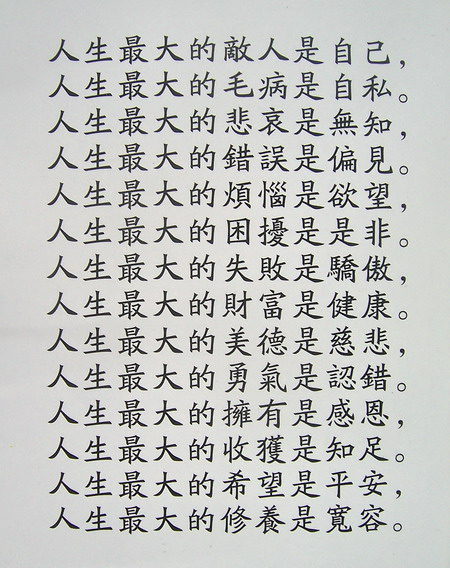 人生最大的敵人是自己，
人生最大的毛病是自私。
人生最大的悲哀是無知，
人生最大的錯誤是偏見。
人生最大的煩惱是欲望，
人生最大的困擾是是非。
人生最大的失敗是驕傲，
人生最大的財富是健康。
人生最大的美德是慈悲，
人生最大的勇氣是認錯。
人生最大的擁有是感恩，
人生最大的收獲是知足。
人生最大的希望是平安，
人生最大的修養是寬容。